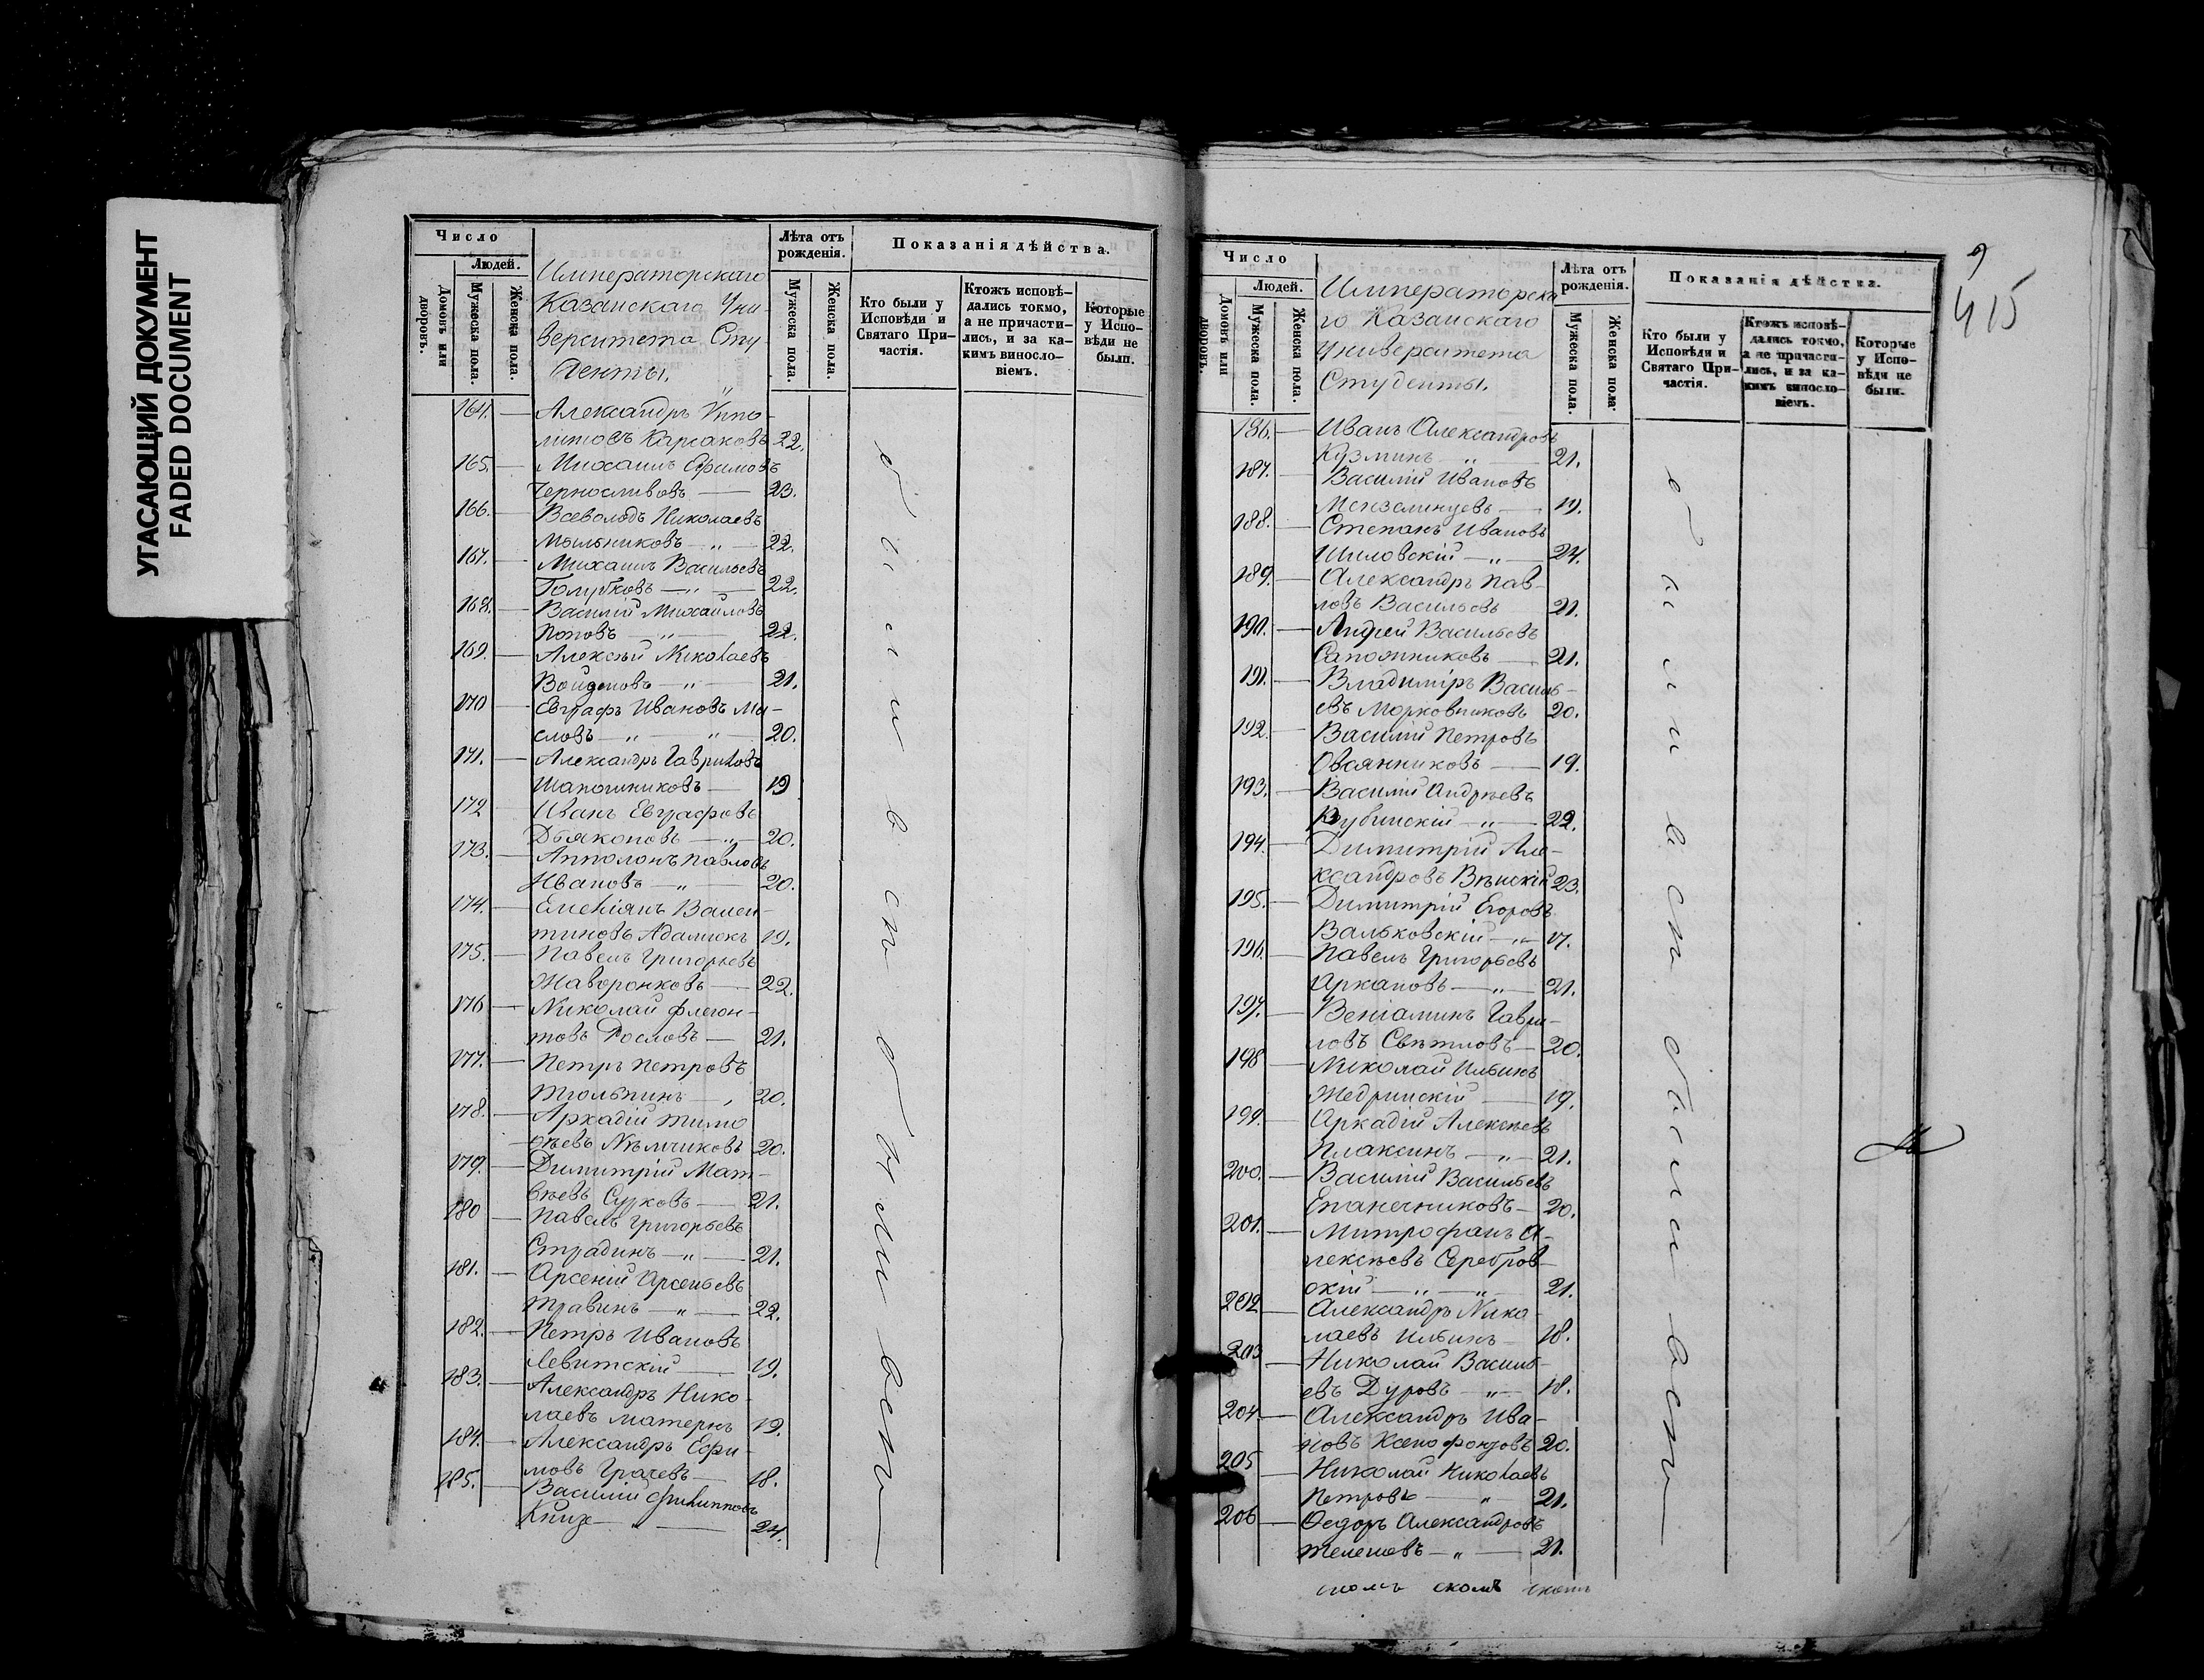 УГАСАЮЩИЙ ДОКУМЕНТ
FADED DOCUMENT
Число
Людей.
Домовъ или дворовъ.
Мужеска пола.
Женска пола.
Императорскаго
Казанскаго Уни-
верситета Сту
денты.
Лѣта отъ рожденія.
Мужеска пола.
Женска пола.
Показанія дѣйства.
Кто были у Исповѣди и Святаго При-частія.
Ктожъ исповѣ-дались токмо, а не причасти-лись, и за ка-кимъ винослo-віемъ.
Которые у Испо-вѣди не были.
164. — Александръ Иппо-
литовъ Карсаковъ 22.
165. — Михаилъ Ефимовъ
Черносливовъ — 23.
166. — Всеволодъ Николаевъ
Мыльниковъ — „ — 22.
167. — Михаилъ Васильевъ
Голубковъ — „ — 22.
168. — Василій Михайловъ
Поповъ — „ — 22.
169. — Алексѣй Николаевъ
— „ — 21.
170 — Евграфъ Ивановъ Ма-
словъ — „ — „ — 20.
171. — Александръ Гавриловъ
Шапошниковъ — 19
172 — Иванъ Евграфовъ
Дьяконовъ — „ — 20.
173. — Апполонъ Павловъ
Ивановъ — „ — 20.
174. — Емеліянъ Вален-
тиновъ Адамюкъ 19.
175. — Павелъ Григорьевъ
Жаворонковъ — 22.
176 — Николай Флегон-
товъ Рословъ — 21.
177. — Петръ Петровъ
Тюльпинъ — „ 20.
178. — Аркадій Тимо
ѳеевъ Нѣмчиковъ 20.
179. — Димитрій Мат-
вѣевъ Сурковъ — 21.
180 — Павелъ Григорьевъ
Страдинъ — „ — 21.
181. — Арсеній Арсеньевъ
Травинъ — „ — 22.
182. — Петръ Ивановъ
Левитскій — 19.
183. — Александръ Нико
лаевъ Матернъ 19.
184. — Александръ Ефи-
мовъ Грачевъ — 18.
185. — Василій Филипповъ
Книзе — „ — 24.
Число
Людей.
Домовъ или дворовъ.
Мужеска пола.
Женска пола.
Императорска
го Казанскаго
Университета
Студенты.
Лѣта отъ рожденія.
Мужеска пола.
Женска пола.
Показанія дѣйства.
Кто были у Исповѣди и Святаго При-частія.
Ктожъ исповѣ-дались токмо, а не причасти-лись, и за ка-кимъ винослo-віемъ.
Которые у Испо-вѣди не были.
415
186. — Иванъ Александровъ
Кузминъ „ — 21.
187. — Василій Ивановъ
Мензелинцевъ — 19.
188. — Степанъ Ивановъ
Шиловскій — „ — 24.
189. — Александръ Пав-
ловъ Васильевъ 21.
190. — Андрей Васильевъ
Сапожниковъ — 21.
191. — Владиміръ Василь-
евъ Морковниковъ 20.
192. — Василій Петровъ
Овсянниковъ — 19.
193. — Василій Андреевъ
Кубинскій — „ — 22.
194. — Димитрій Але-
ксандровъ Вѣнскій 23.
195. — Димитрій Егоровъ
Вальковскій — „ — 17.
196. — Павелъ Григорьевъ
Аркановъ — „ — 21.
197. — Веніаминъ Гаври-
ловъ Свѣтловъ — 20.
198 — Николай Ильинъ
Жедринскій — 19.
199. — Аркадій Алексѣевъ
Плаксинъ — „ — 21.
200. — Василій Васильевъ
Епанечниковъ — 20.
201. — Митрофанъ А-
лексѣевъ Серебров-
скій — „ — „ 21.
202 — Александръ Нико-
лаевъ Ильинъ — 18.
203 — Николай Василь-
евъ Дуровъ — „ — 18.
204 — Александръ Ива-
новъ Ксенофонтовъ 20.
205 — Николай Николаевъ
Петровъ — „ 21.
206 — Ѳедоръ Александровъ
Телешовъ — „ — 21.